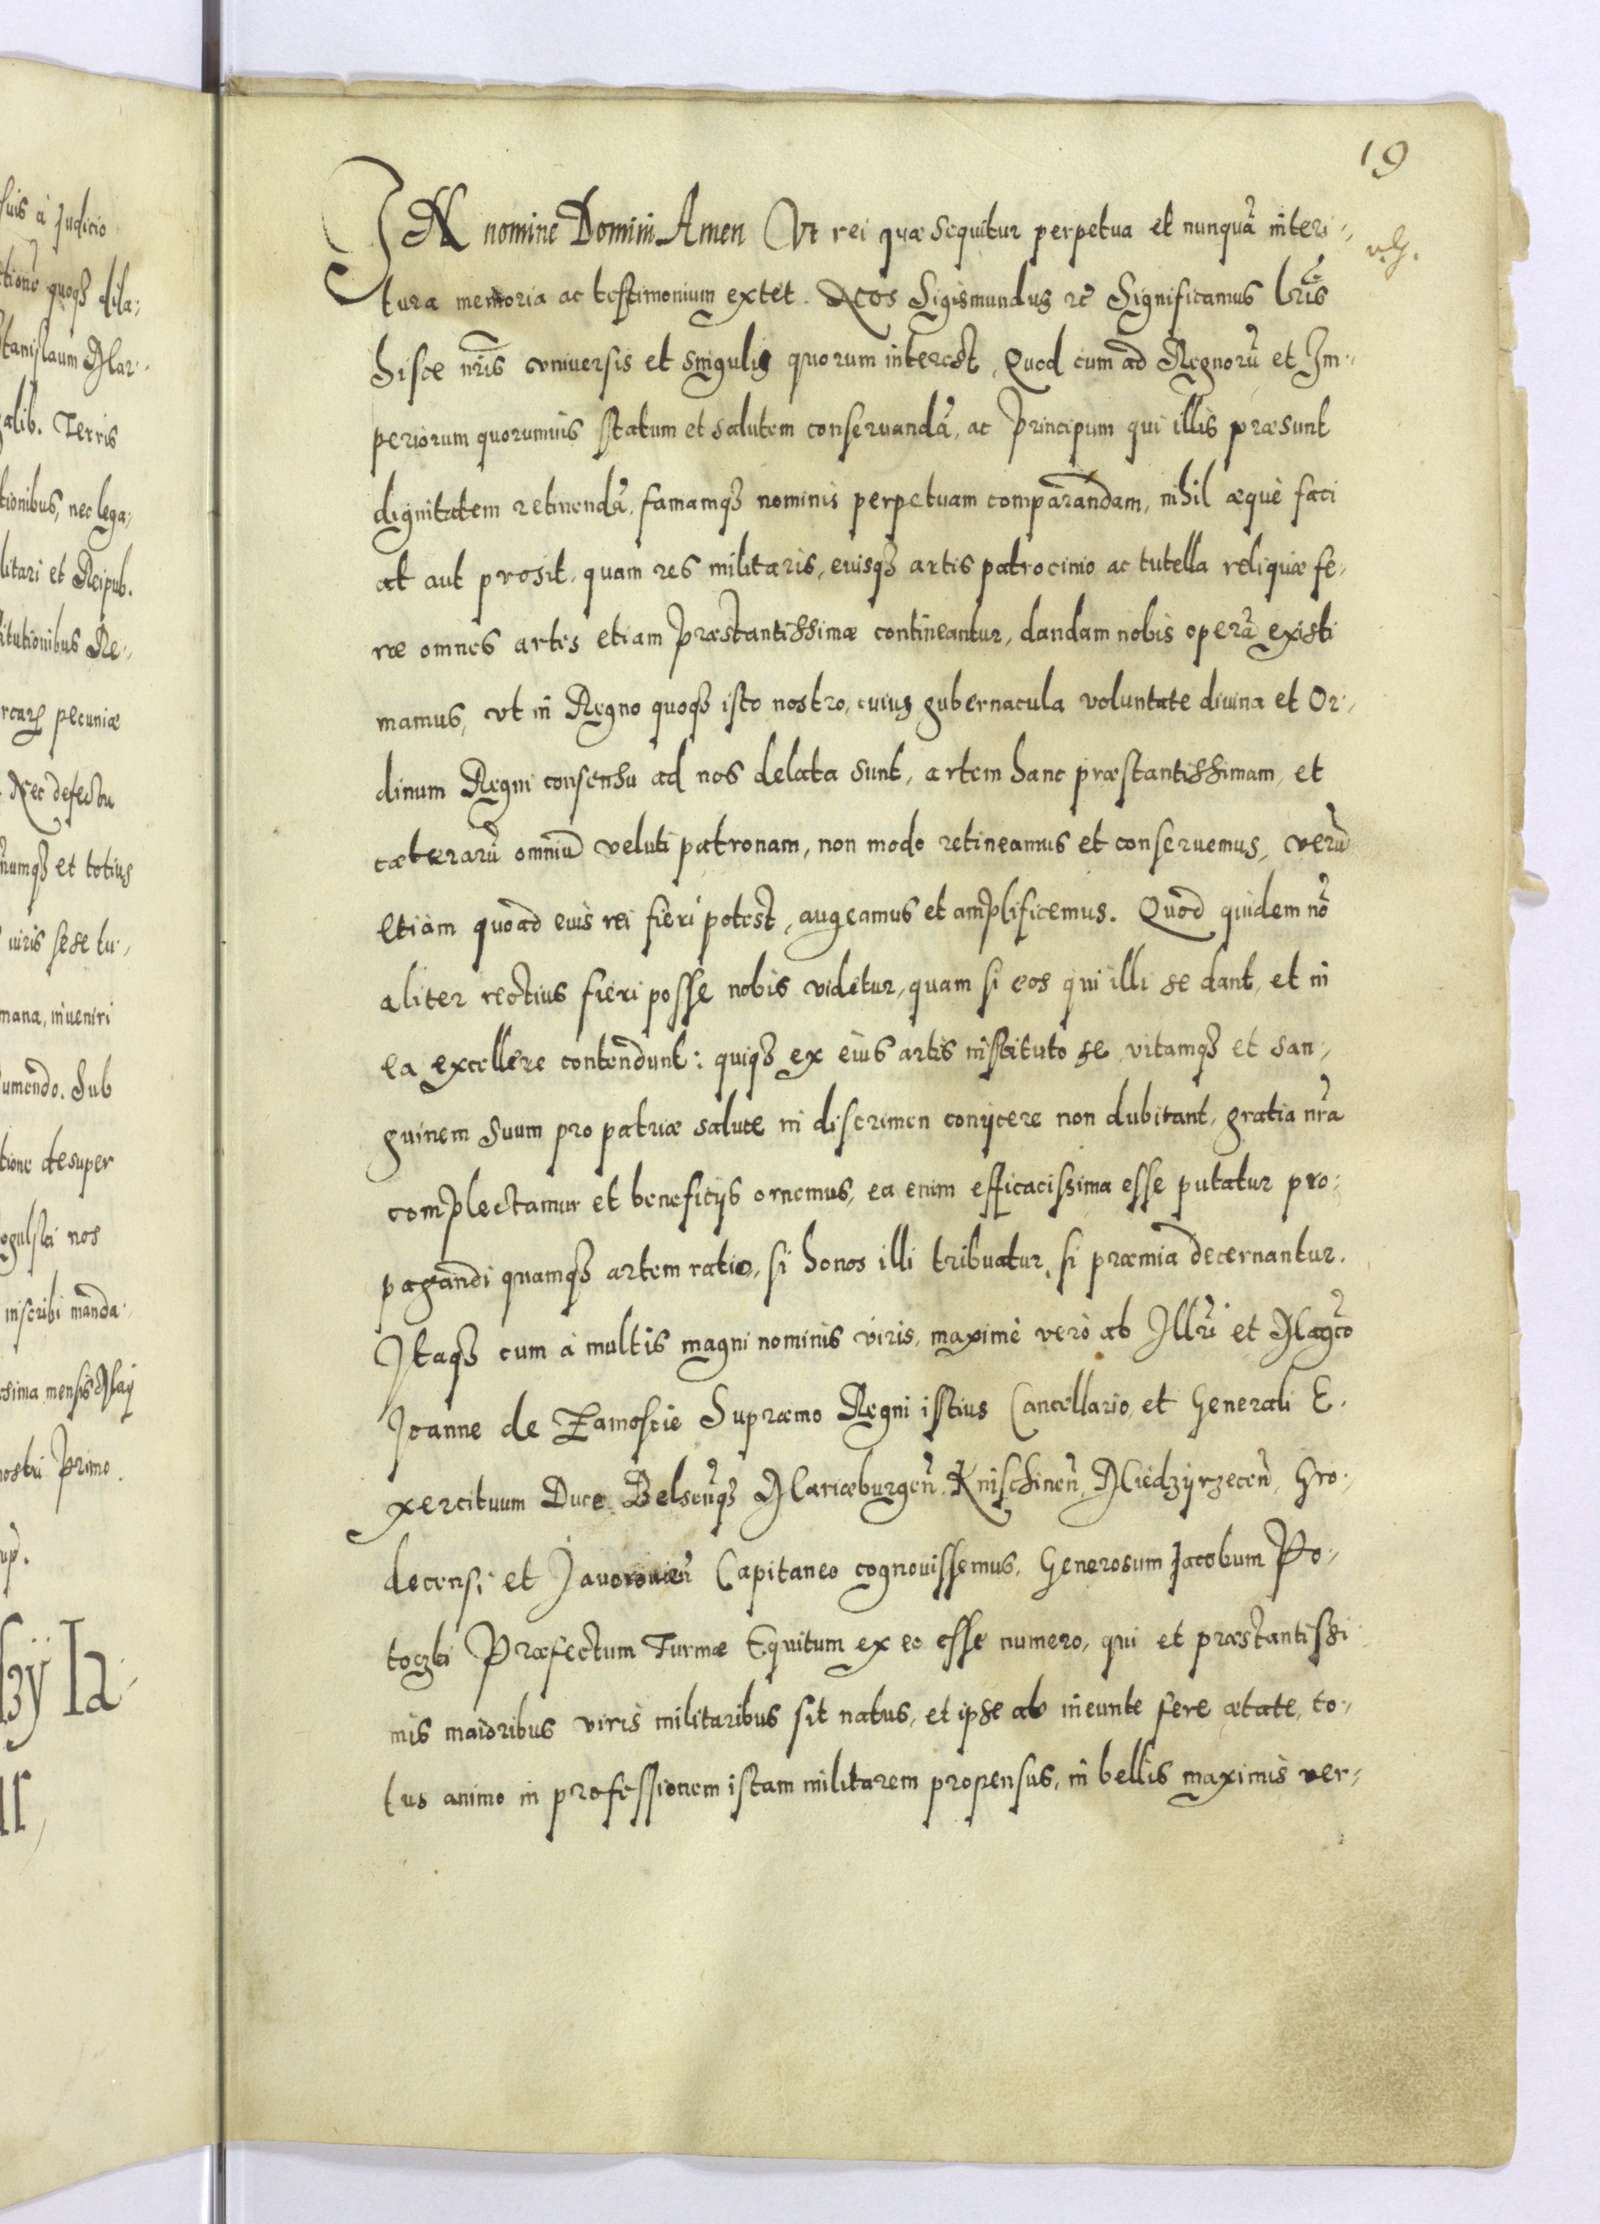 suis à Judicio
tione quoqꝫ dila-
Stanislaum Mar-
galib. Terris
tionibus, nec lega-
litari et Reipub.
titutionibus Re-
pecuniæ
Nec defectu
numqꝫ et totius
viris sese tu-
mana, inueniri
sumendo. Sub
tione desuper
nos
inscribi manda-
ssima mensis Maij
nostri Primo.
Ia-
19
IN nomine Domini Amen Vt rei quæ sequitur perpetua et nunquã interi-
tura memoria ac testimonium extet. Nos Sigismundus rc̃ Significamus lr̃is
hisce nr̃is vniuersis et singulis quorum interest, Quod cum ad Regnorũ et Im-
periorum quorumuis statum et salutem conseruandã, ac Principum qui illis præsunt
dignitatem retinendã, famamqꝫ nominis perpetuam comparandam, nihil æquè faci
at aut prosit, quam res militaris, euisqꝫ artis patrocinio ac tutella reliquæ fe-
ræ omnes artes etiam præstantissimæ contineantur, dandam nobis operã existi
mamus, vt in Regno quoqꝫ isto nostro, cuius gubernacula voluntate diuina et Or-
dinum Regni consensu ad nos delata sunt, artem hanc præstantissimam, et
cæterarũ omniũ veluti patronam, non modo retineamus et conseruemus, verũ
etiam quoad euis rei fieri potest, augeamus et amplificemus. Quod quidem nõ
aliter rectius fieri posse nobis videtur, quam si eos qui illi se dant, et in
ea excellere contendunt: quiqꝫ ex eius artis instituto se vitamqꝫ et san-
guinem suum pro patriæ salute in discrimen conijcere non dubitant, gratia nr̃a
complectamur et beneficijs ornemus, ea enim efficacissima esse putatur pro-
pagandi quamqꝫ artem ratio, si honos illi tribuatur, si præmia decernantur.
Itaqꝫ cum à multis magni nominis viris, maximè verò ab Illr̃i et Mag̃co
Joanne de Zamoscie Supræmo Regni istius Cancellario, et Generali E-
xercituum Duce Belsen̄qꝫ Mariæburgen̄, Knischinen̄, Miedzyrzecen̄, Gro-
decensi et Jauorouien̄ Capitaneo cognouissemus, Generosum Jacobum Po-
toczki Præfectum Turmæ Equitum ex eo esse numero, qui et præstantissi
mis maioribus viris militaribus sit natus, et ipse ab ineunte fere ætate, to-
tus animo in professionem istam militarem propensus, in bellis maximis ver-